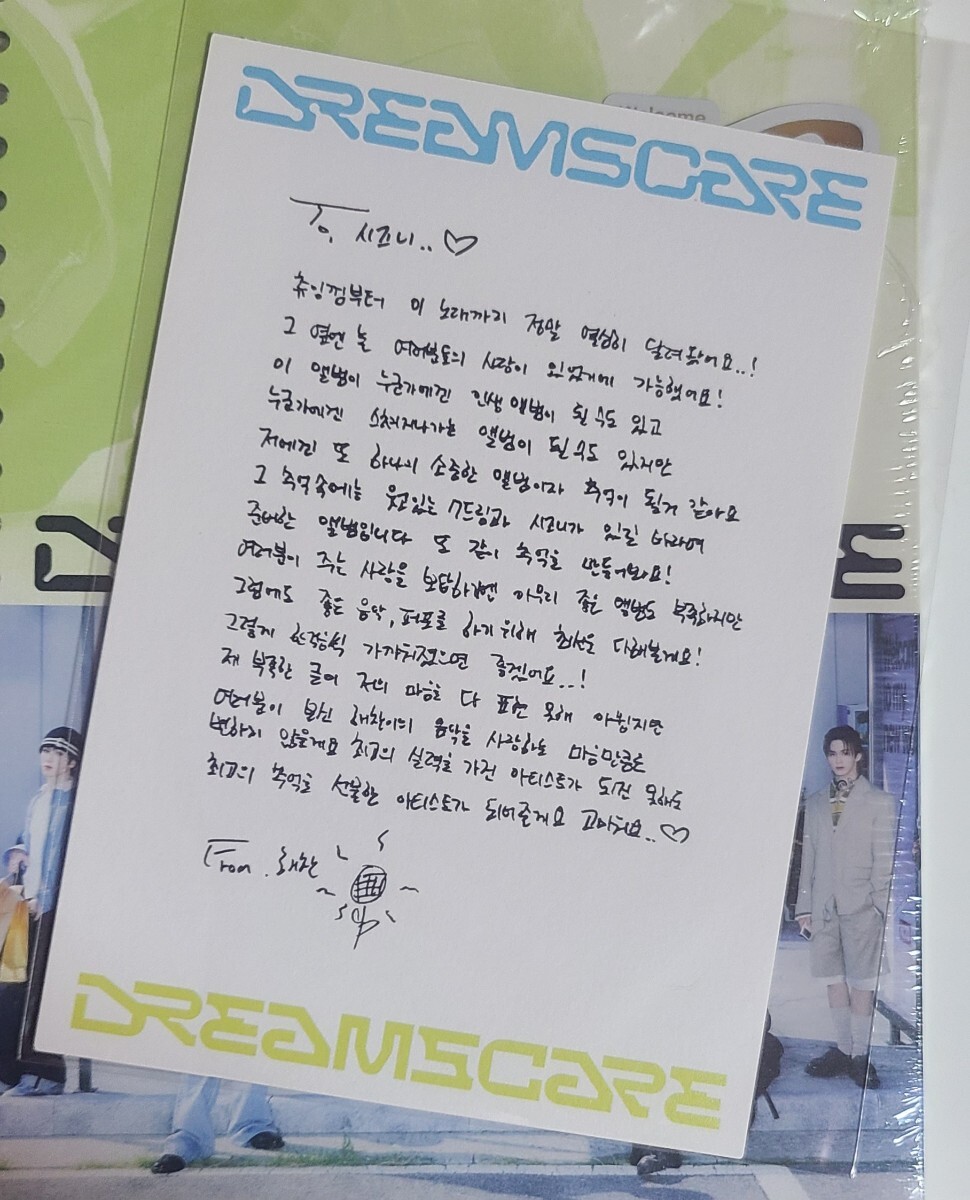 Welcome
DREAMSCAPE
To. 시즈니.. ♡
츄잉껌부터 이 노래까지 정말 열심히 달려왔어요..!
그 옆엔 늘 여러분들의 사랑이 있었기에 가능했어요!
이 앨범이 누군가에겐 인생 앨범이 될 수도 있고
누군가에겐 스쳐지나가는 앨범이 될 수도 있지만
저에겐 또 하나의 소중한 앨범이자 추억이 될거 같아요
그 추억속에는 웃고있는 7드림과 시즈니가 있길 바라며
준비한 앨범입니다 또 같이 추억을 만들어봐요!
여러분이 주는 사랑을 보답하기엔 아무리 좋은 앨범도 부족하지만
그럼에도 좋은 음악, 퍼포를 하기 위해 최선을 다해볼게요!
그렇게 한걸음씩 가까워졌으면 좋겠어요..!
제 부족한 글이 저의 마음을 다 표현 못해 아쉽지만
여러분이 보신 해찬이의 음악을 사랑하는 마음만큼은
변하지 않을게요 최고의 실력을 가진 아티스트가 되진 못해도
최고의 추억을 선물한 아티스트가 되어줄게요 고마워요..♡
From. 해찬
DREAMSCAPE